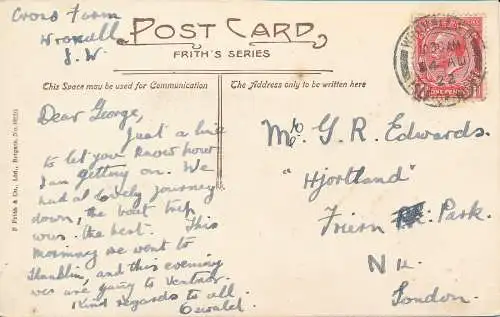 Cross Farm
Wroxall
I.W
POST CARD
FRITH'S SERIES
This Space may be used for Communication
The Address only to be written here
Dear George,
Just a line
to let you know how
I am getting on. We
had a lovely journey
down, the boat trip
was the best. This
morning we went to
Shanklin, and this evening
we are going to Ventnor.
Kind regards to all
Oswald.
Mr. G. R. Edwards.
"Hjortland"
Friern Park.
N 12.
London.
F Frith & Co., Ltd., Reigate. No.
ONE PENNY
AU
22